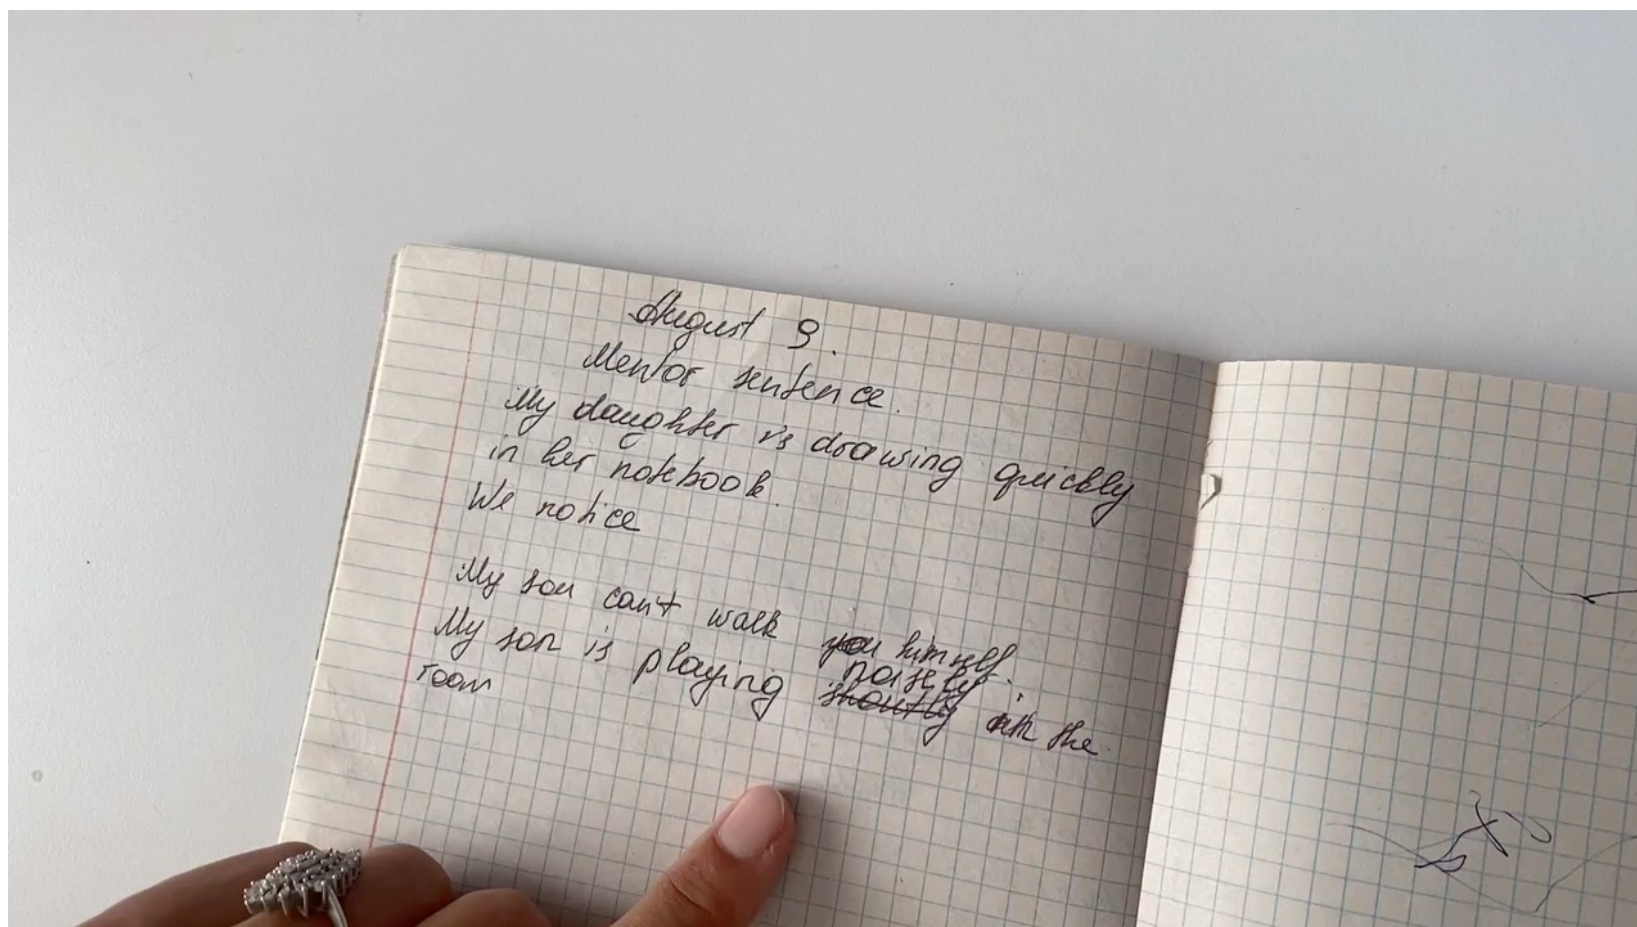 August 9.
Mentor sentence.
My daughter is drawing quickly
in her notebook.
We notice
My son can't walk you himself.
noisely
My son is playing shoutly in the
room